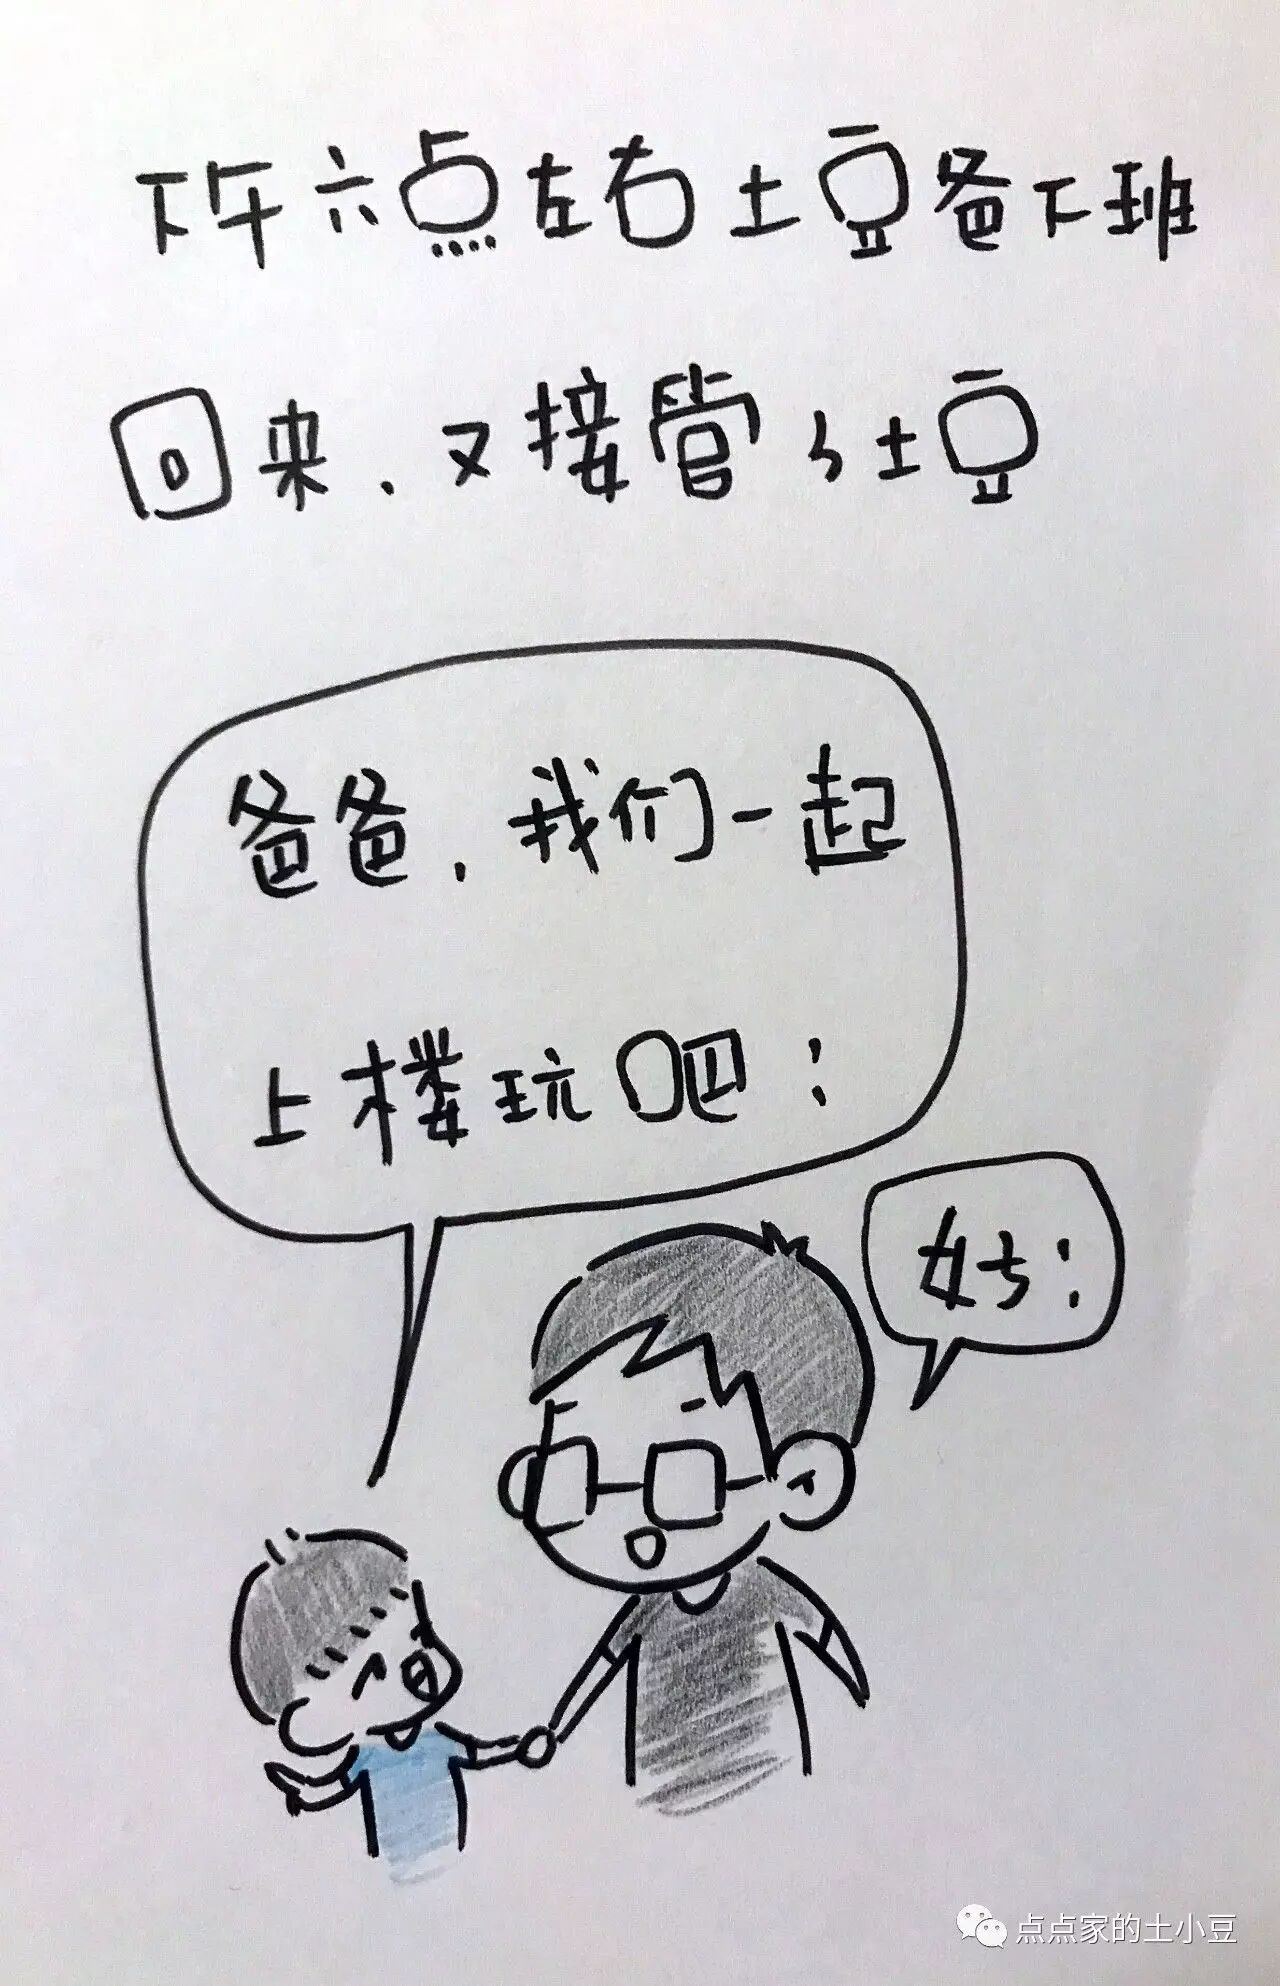 下午六点左右土豆爸下班
回来.又接管了土豆
爸爸.我们一起
上楼玩吧!
好!
点点家的土小豆